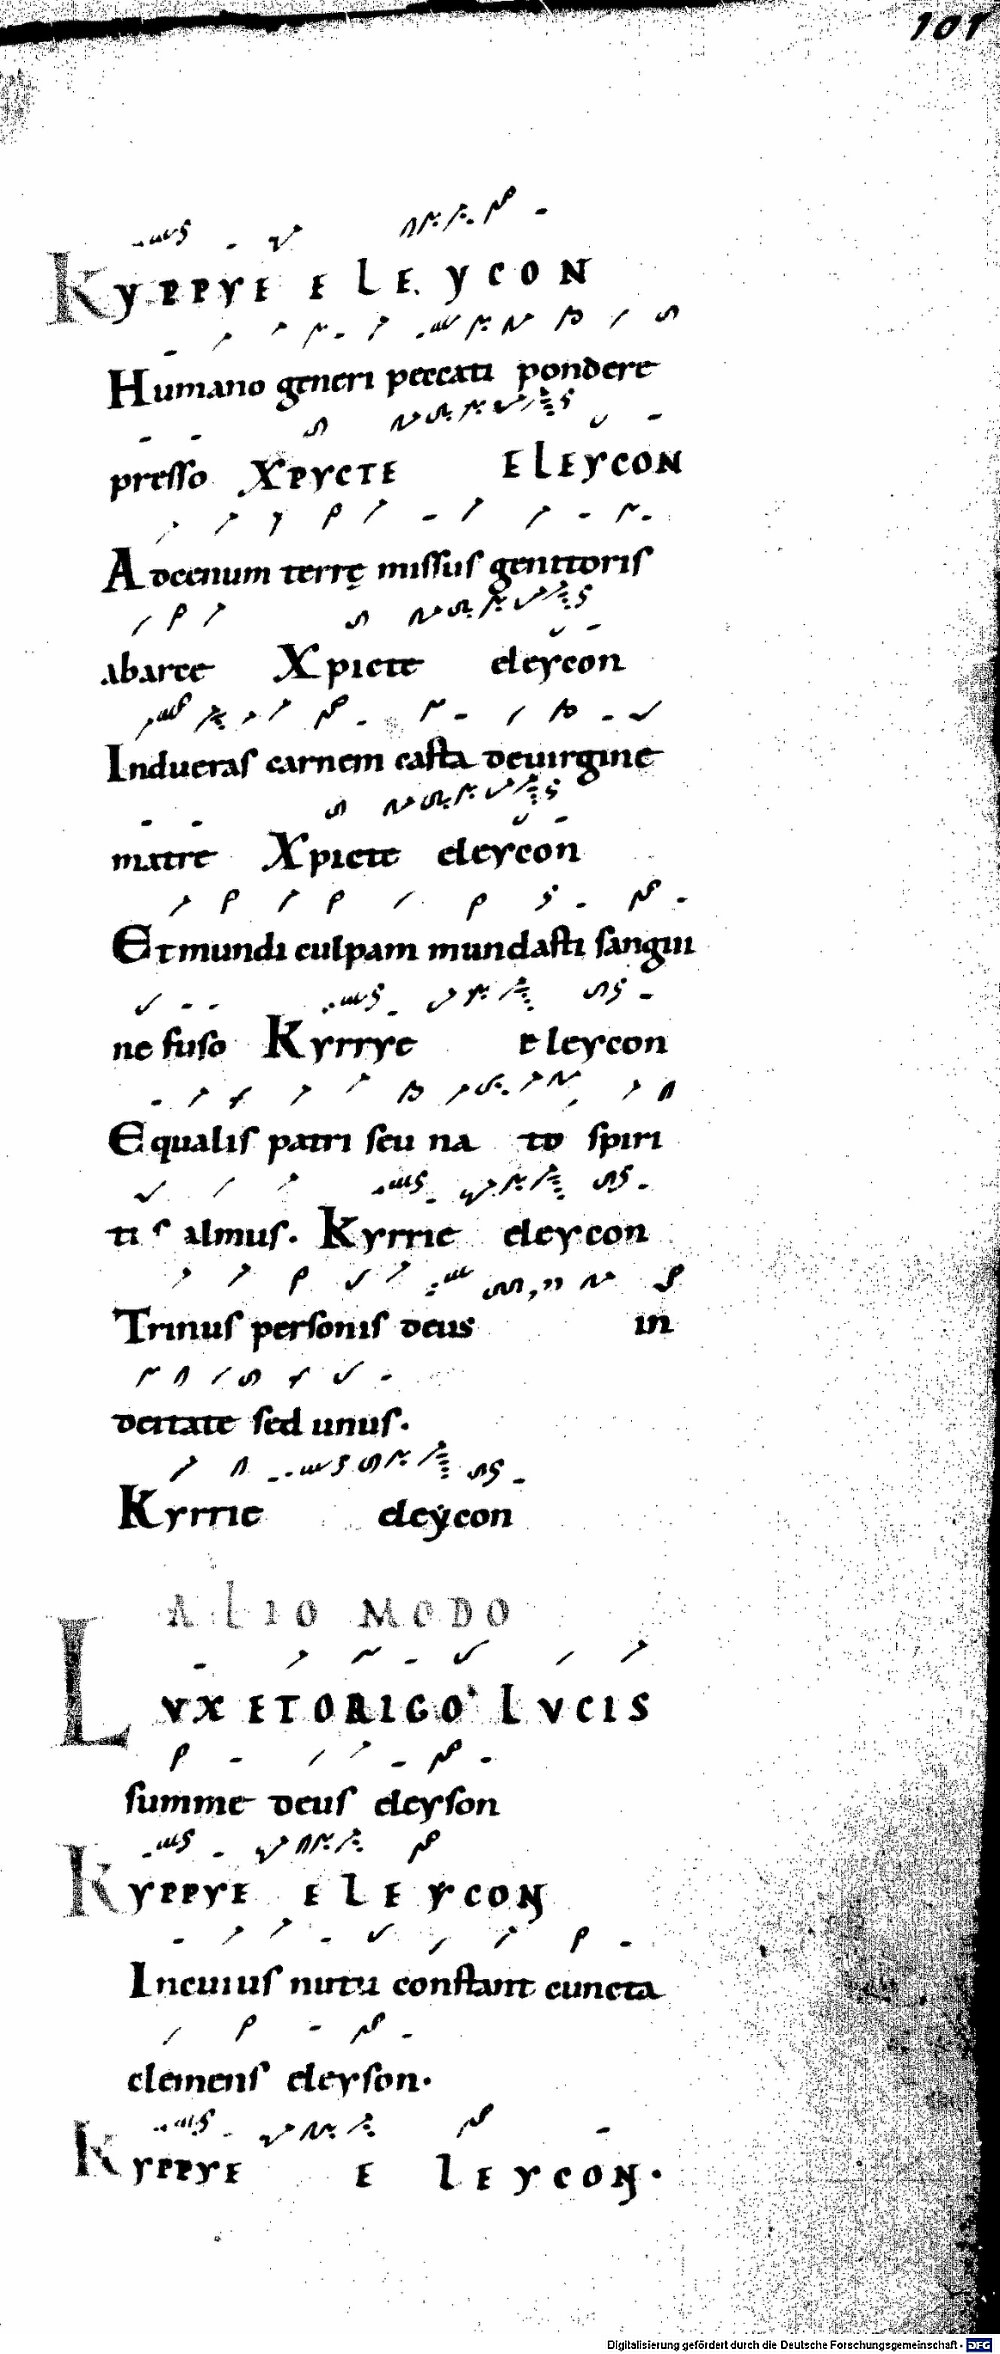 101
KYPPYE ELEYCON
Humano generi peccati pondere
presso XPYCTE ELEYCON
Adcenum terrę missus genitoris
abarce Xpicte eleycon
Indueras carnem casta deuirgine
matre Xpicte eleycon
Etmundi culpam mundasti sangui
ne fuso Kyrrye eleycon
Equalis patri seu na to spiri
tis almus. Kyrrie eleycon
Trinus personis deus in
deitate sed unus.
Kyrrie eleycon
ALIO MODO
LVX ETORIGO LVCIS
summe deus eleyson
KYPPYE ELEYCON
Incuius nutu constant cuncta
clemens eleyson.
KYPPYE E LEYCON.
Digitalisierung gefördert durch die Deutsche Forschungsgemeinschaft - DFG